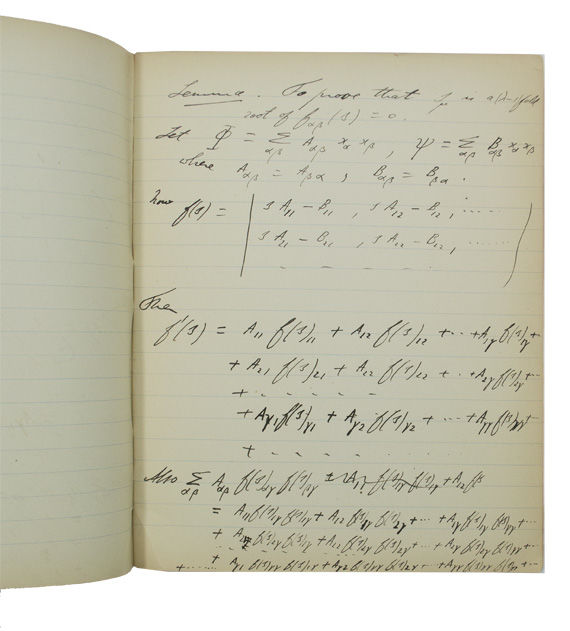 Lemma. To prove that sμ is a (λ-1) fold
root of fαβ(s) = 0.
Let Φ = Σαβ Aαβ xα xβ , Ψ = Σαβ Bαβ xα xβ
where Aαβ = Aβα , Bαβ = Bβα .
now f(s) = | sA11 - B11 , sA12 - B12 , ......
sA21 - B21 , sA22 - B22 , ......
- - - - |
Then
f'(s) = A11 f(s)11 + A12 f(s)12 + ... + A1γ f(s)1γ +
+ A21 f(s)21 + A22 f(s)22 + ... + A2γ f(s)2γ + ...
+ - - - - -
+ Aγ1 f(s)γ1 + Aγ2 f(s)γ2 + ... + Aγγ f(s)γγ +
+ - - - - -
Also Σαβ Aαβ f(s)αγ f(s)βγ f(s)1γ f(s)1γ + A12 f(s)
= A11 f(s)1γ f(s)1γ + A12 f(s)1γ f(s)2γ + ... + A1γ f(s)1γ f(s)γγ + ...
f(s)2γ f(s)1γ f(s)2γ f(s)2γ + ... f(s)2γ f(s)γγ + ...
+ Aγ1 f(s)γγ f(s)1γ + Aγ2 f(s)γγ f(s)2γ + ... + Aγγ f(s)γγ f(s)γγ + ...